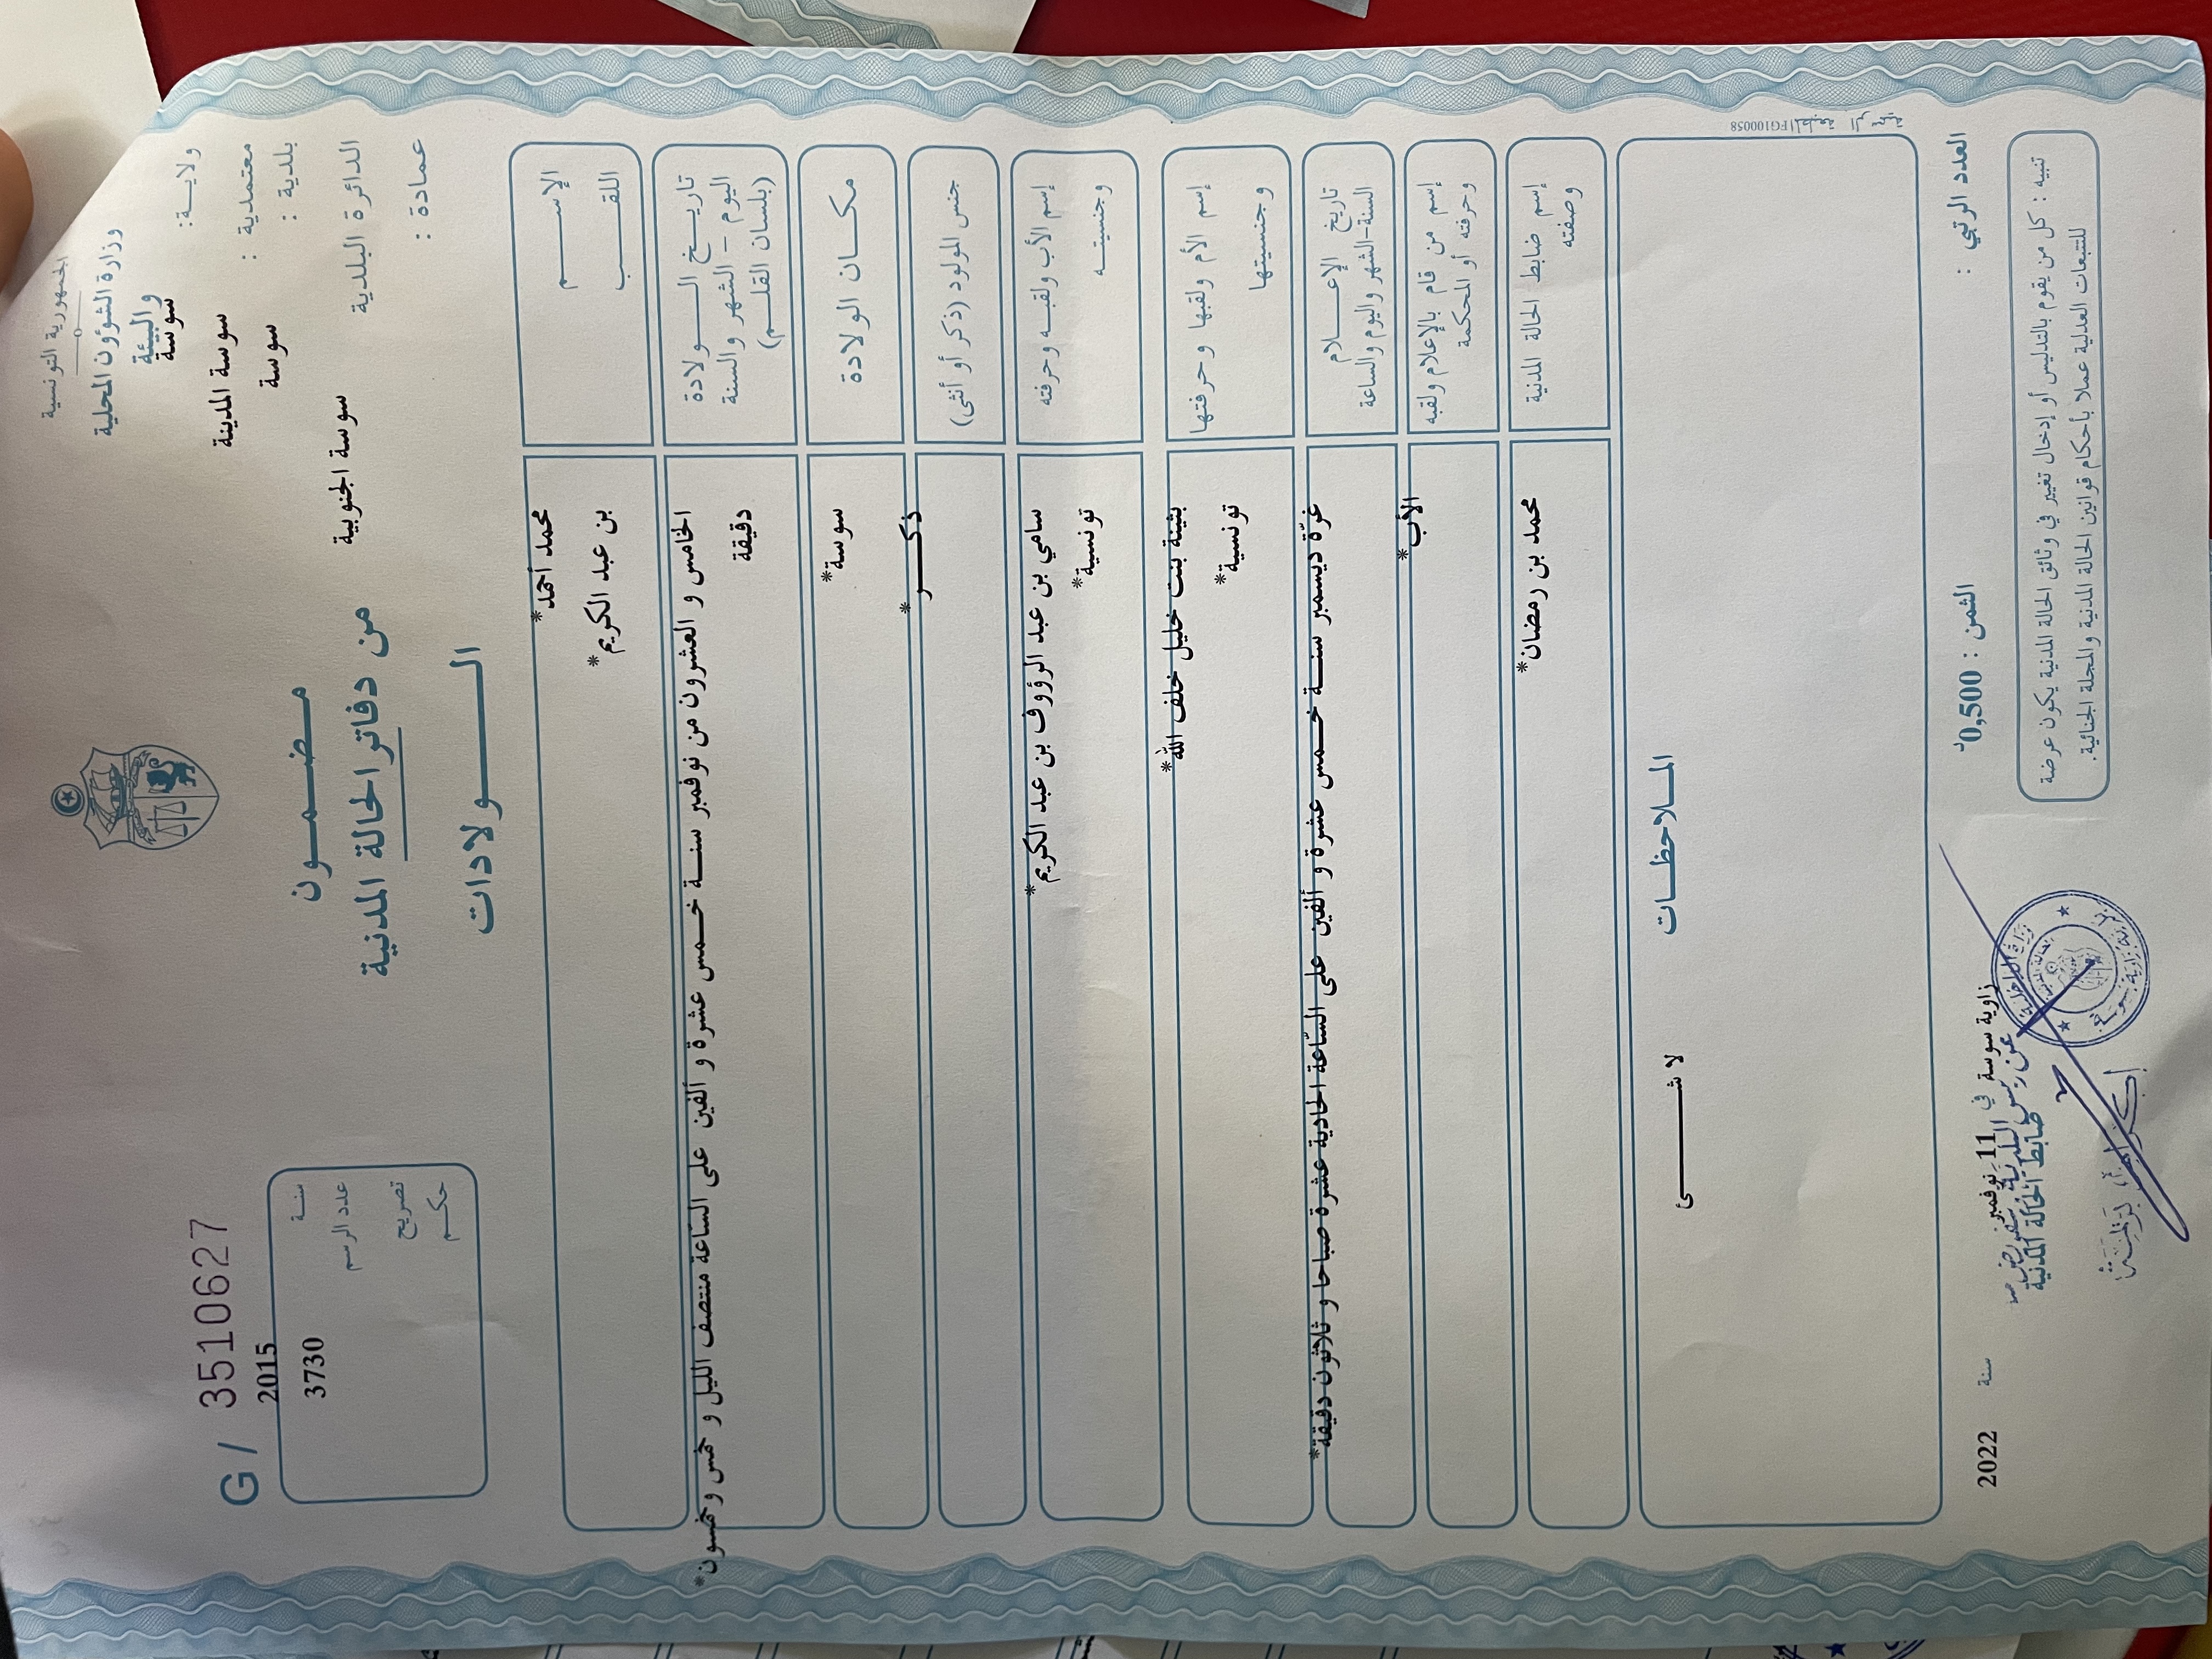 الجمهورية التونسية
وزارة الشؤون المحلية
والبيئة
ولايـة: سوسة
معتمدية : سوسة المدينة
بلدية : سوسة
الدائرة البلدية سوسة الجنوبية
عمادة :
G/ 3510627
سنـة 2015
عدد الرسم 3730
تصريح
حكـم
مـضـمـون
من دفاتر الحالة المدنية
الـولادات
الإسـم محمد أحمد*
اللقـب بن عبد الكريم*
تاريـخ الـولادة
اليوم - الشهر والسنة
(بلسان القلـم)
الخامس و العشرون من نوفمبر سنـة خـمس عشرة و ألفين على الساعة منتصف الليل و خمس وخمسون*
دقيقة
مكـان الولادة سوسة*
جنس المولود (ذكر أو أنثى) ذكـر*
إسم الأب ولقبـه وحرفته سامي بن عبد الرؤوف بن عبد الكريم*
وجنسيتـه تونسية*
إسم الأم ولقبها وحرفتها بثينة بنت خليل خلف الله*
وجنسيتها تونسية*
تاريخ الإعـلام
السنة-الشهر واليوم والساعة
غرّة ديسمبر سنـة خـمس عشرة و ألفين على السّاعة الحادية عشرة صباحا و ثلاثون دقيقة*
إسم من قام بالإعلام ولقبه
وحرفته أو المحكمة
الأب*
إسم ضابط الحالة المدنية
وصفته
محمد بن رمضان*
الملاحظـات
لا شـئ
المطبعة الرسمية FG100058
العدد الرتبي :
الثمن : 0,500د
زاوية سوسة في 11 نوفمبر سنة 2022
ضابط الحالة المدنية
تنبيه : كل من يقوم بالتدليس أو إدخال تغيير في وثائق الحالة المدنية يكون عرضة
للتتبعات العدلية عملا بأحكام قوانين الحالة المدنية والمجلة الجنائية.